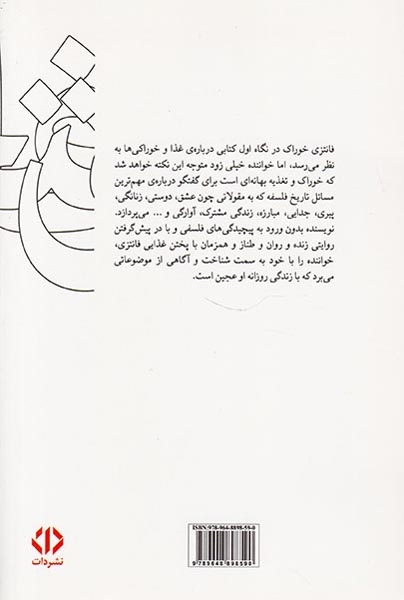 فانتزی خوراک در نگاه اول کتابی درباره‌ی غذا و خوراکی‌ها به
نظر می‌رسد، اما خواننده خیلی زود متوجه این نکته خواهد شد
که خوراک و تغذیه بهانه‌ای است برای گفتگو درباره‌ی مهم‌ترین
مسائل تاریخ فلسفه که به مقولاتی چون عشق، دوستی، زنانگی،
پیری، جدایی، مبارزه، زندگی مشترک، آوارگی و ... می‌پردازد.
نویسنده بدون ورود به پیچیدگی‌های فلسفی و با در پیش‌گرفتن
روایتی زنده و روان و طناز و همزمان با پختن غذایی فانتزی،
خواننده را با خود به سمت شناخت و آگاهی از موضوعاتی
می‌برد که با زندگی روزانه او عجین است.
ISBN: 978-964-8898-59-0
9 789648 898590
نشردات